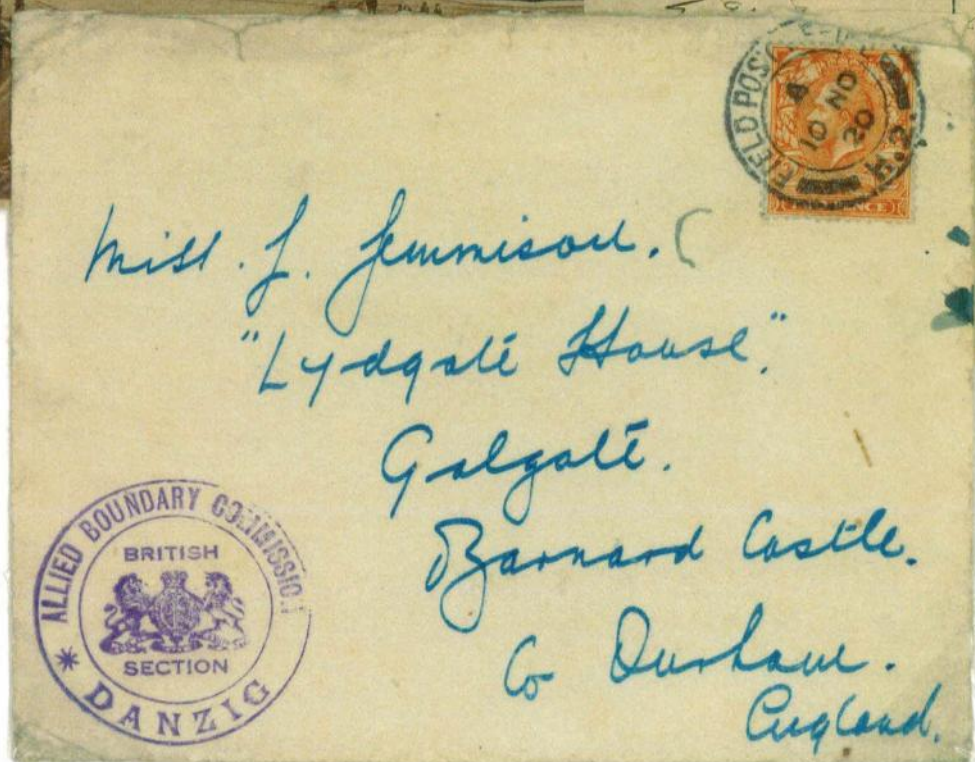 FIELD POST
H.D.
A
10 NO
20
Miss. J. Jemmison.
"Lydgate House".
Galgate.
Barnard Castle.
Co Durham.
England.
ALLIED BOUNDARY COMMISSION
BRITISH
SECTION
* DANZIG